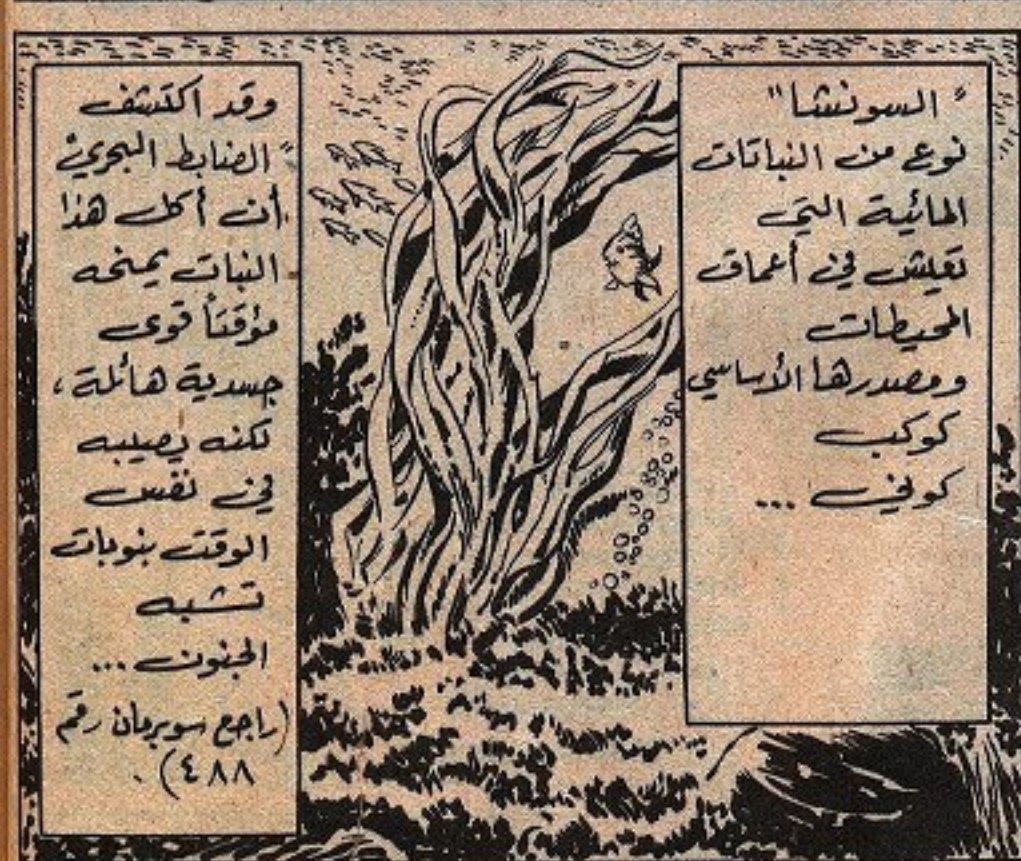 "السونشا"
نوع من النباتات
المائية التي
تعيش في أعماق
المحيطات
ومصدرها الأساسي
كوكب
كوني ...
وقد اكتشف
"الضابط البحري"
أن أكل هذا
النبات يمنحه
مؤقتاً قوى
جسدية هائلة،
لكنه يصيبه
في نفس
الوقت بنوبات
تشبه
الجنون ...
(راجع سوبرمان رقم
٤٨٨).